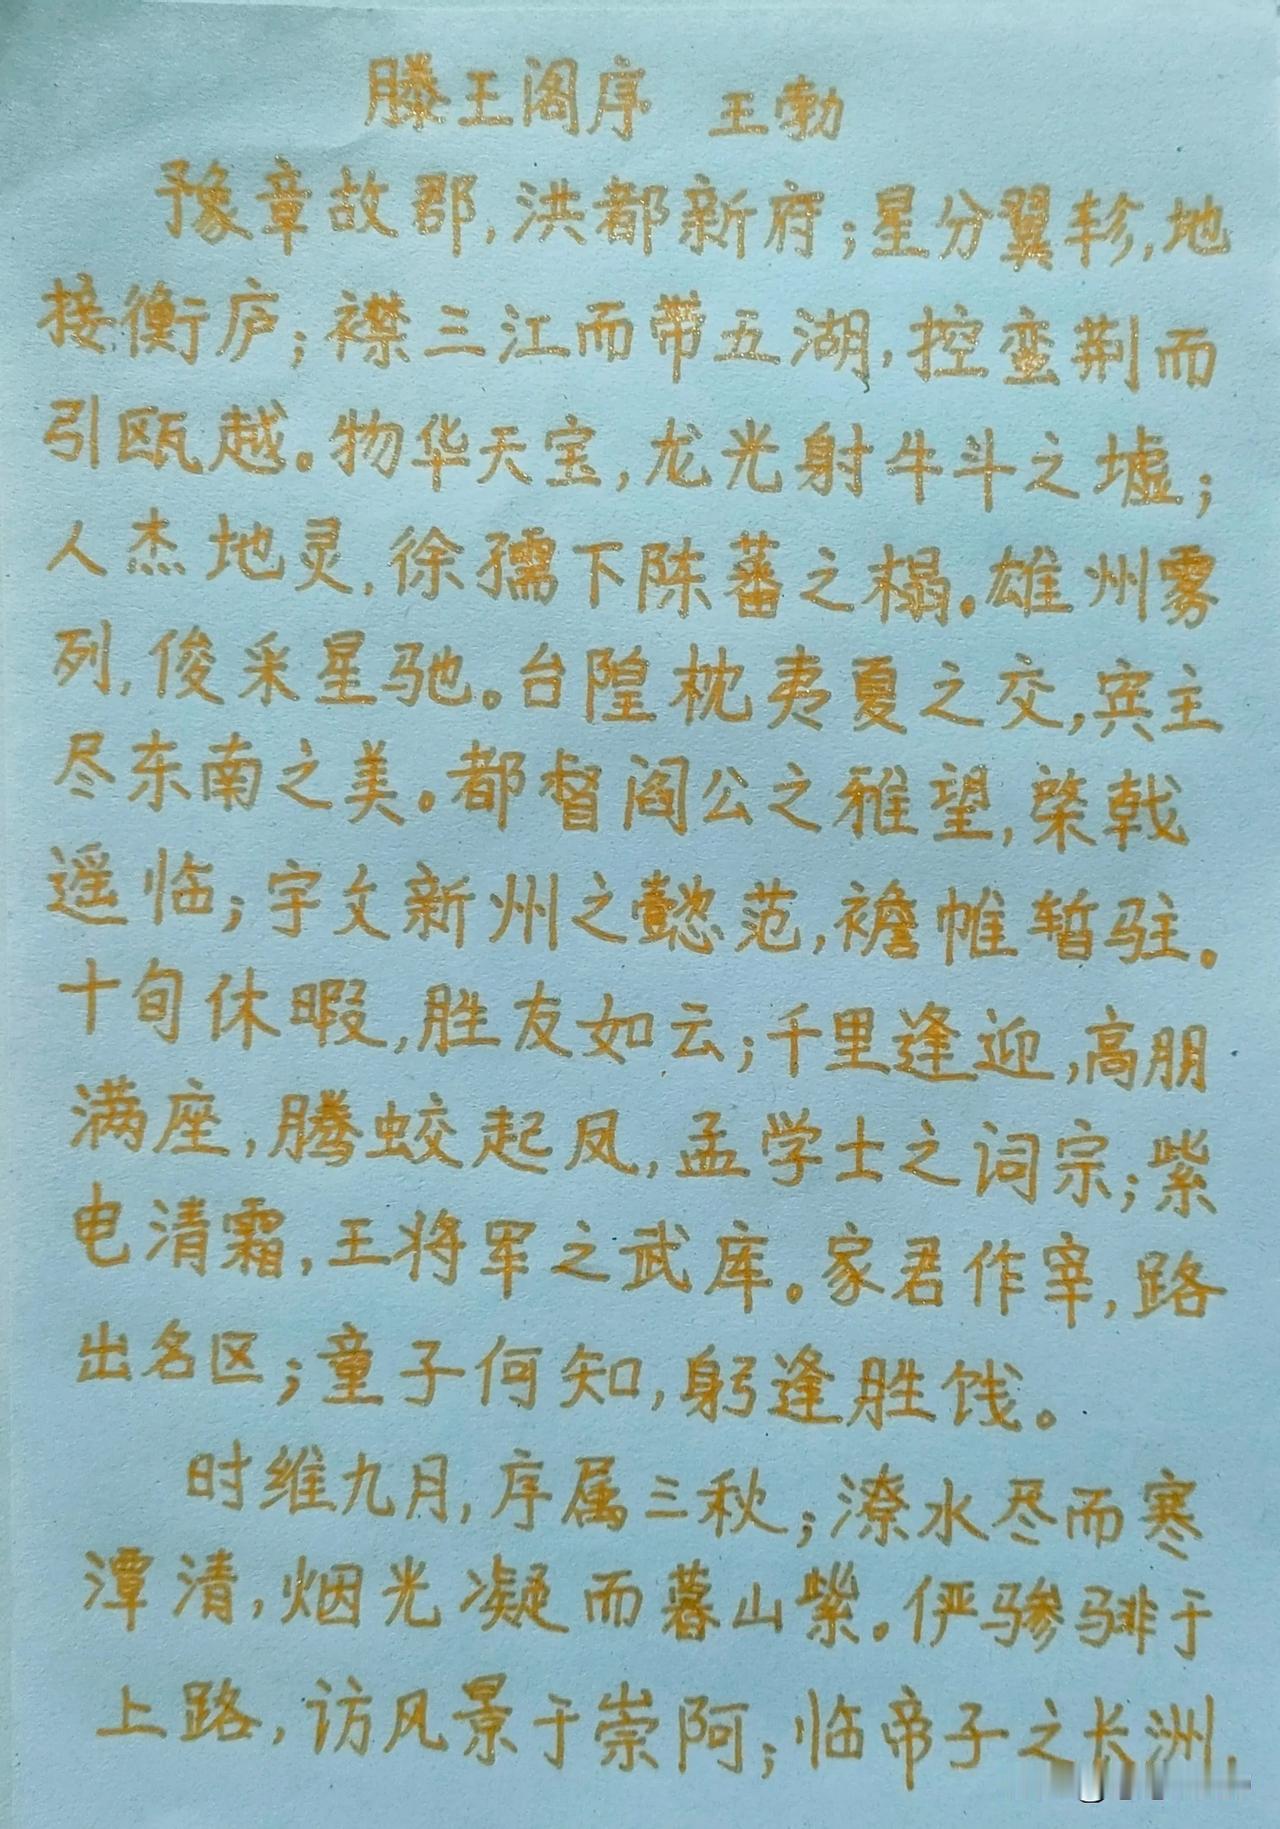 滕王阁序 王勃
豫章故郡,洪都新府;星分翼轸,地
接衡庐;襟三江而带五湖,控蛮荆而
引瓯越。物华天宝,龙光射牛斗之墟;
人杰地灵,徐孺下陈蕃之榻。雄州雾
列,俊采星驰。台隍枕夷夏之交,宾主
尽东南之美。都督阎公之雅望,棨戟
遥临;宇文新州之懿范,襜帷暂驻。
十旬休暇,胜友如云;千里逢迎,高朋
满座,腾蛟起凤,孟学士之词宗;紫
电清霜,王将军之武库。家君作宰,路
出名区;童子何知,躬逢胜饯。
时维九月,序属三秋;潦水尽而寒
潭清,烟光凝而暮山紫。俨骖騑于
上路,访风景于崇阿;临帝子之长洲,